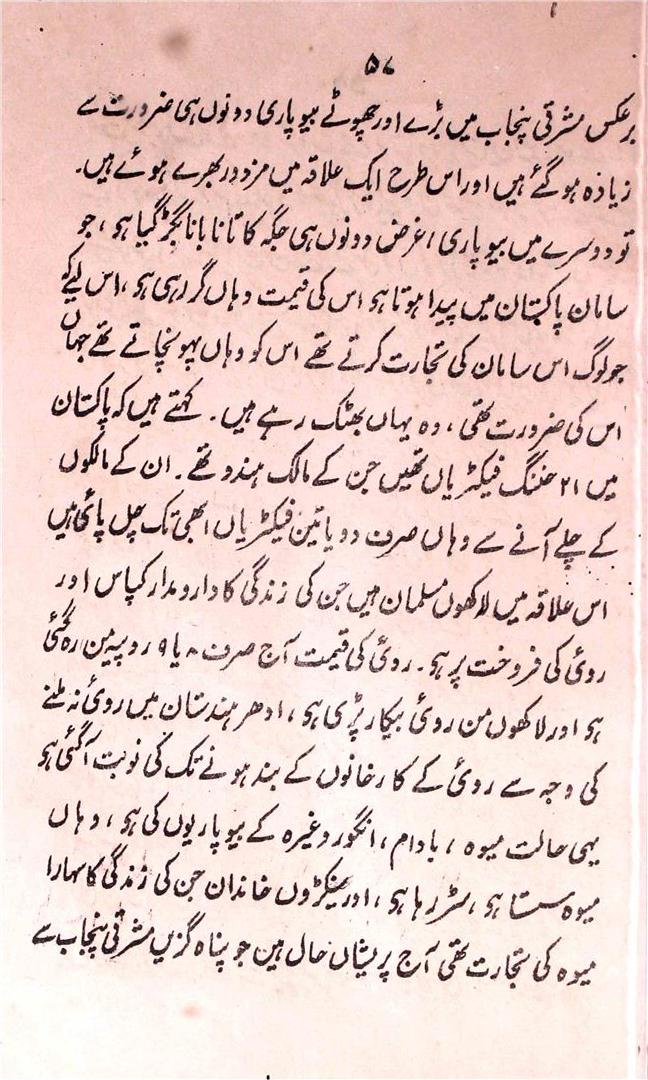 ۵۷
برعکس مشرقی پنجاب میں بڑے اور چھوٹے بیوپاری دونوں ہی ضرورت سے
زیادہ ہو گئے ہیں اور اس طرح ایک علاقہ میں مزدور بھرے ہوئے ہیں۔
تو دوسرے میں بیوپاری، غرض دونوں ہی جگہ کا تانا بانا بگڑ گیا ہو، جو
سامان پاکستان میں پیدا ہوتا ہو اس کی قیمت وہاں گر رہی ہو، اس لیے کہ
جو لوگ اس سامان کی تجارت کرتے تھے اس کو وہاں پہونچاتے تھے جہاں
اس کی ضرورت تھی، وہ یہاں بھٹک رہے ہیں۔ کہتے ہیں کہ پاکستان
میں ۲۱ جننگ فیکٹریاں تھیں جن کے مالک ہندو تھے۔ ان کے مالکوں
کے چلے آنے سے وہاں صرف دو یا تین فیکٹریاں ابھی تک چل پائی ہیں
اس علاقہ میں لاکھوں مسلمان ہیں جن کی زندگی کا دارومدار کپاس اور
روئی کی فروخت پر ہو۔ روئی کی قیمت آج صرف ۸ یا ۹ روپیہ من رہ گئی
ہو اور لاکھوں من روئی بیکار پڑی ہو، ادھر ہندستان میں روئی نہ ملنے
کی وجہ سے روئی کے کارخانوں کے بند ہونے تک کی نوبت آگئی ہو
یہی حالت میوہ، بادام، انگور وغیرہ کے بیوپاریوں کی ہو، وہاں
میوہ سستا ہو، سڑ رہا ہو، اور سینکڑوں خاندان جن کی زندگی کا سہارا
میوہ کی تجارت تھی آج پریشاں حال ہین جو پناہ گزیں مشرقی پنجاب سے